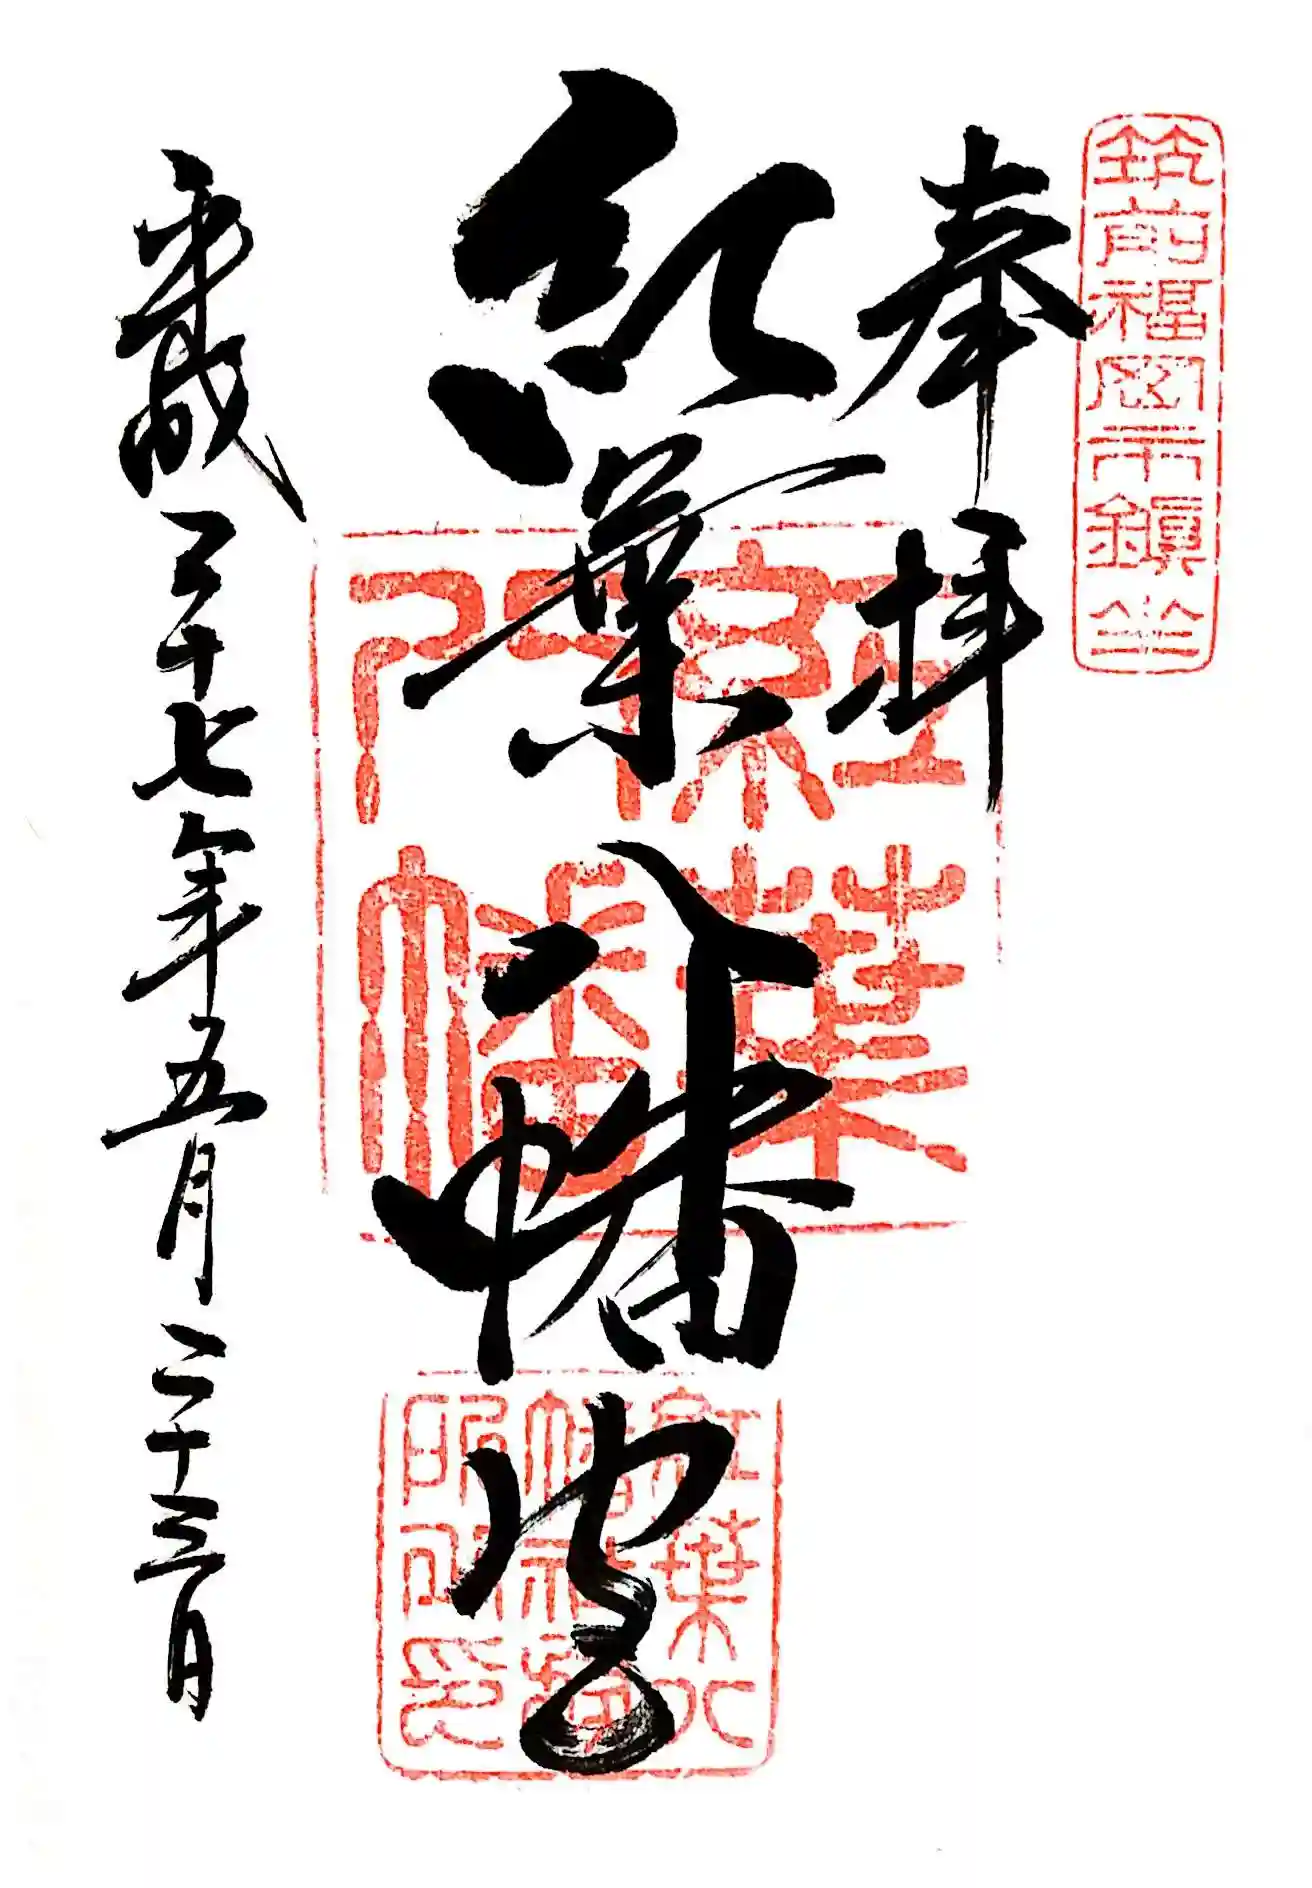 筑前福岡市鎮坐
奉拝
紅葉八幡宮
紅葉
八幡
紅葉八
幡社務
所之印
平成二十七年五月二十三日